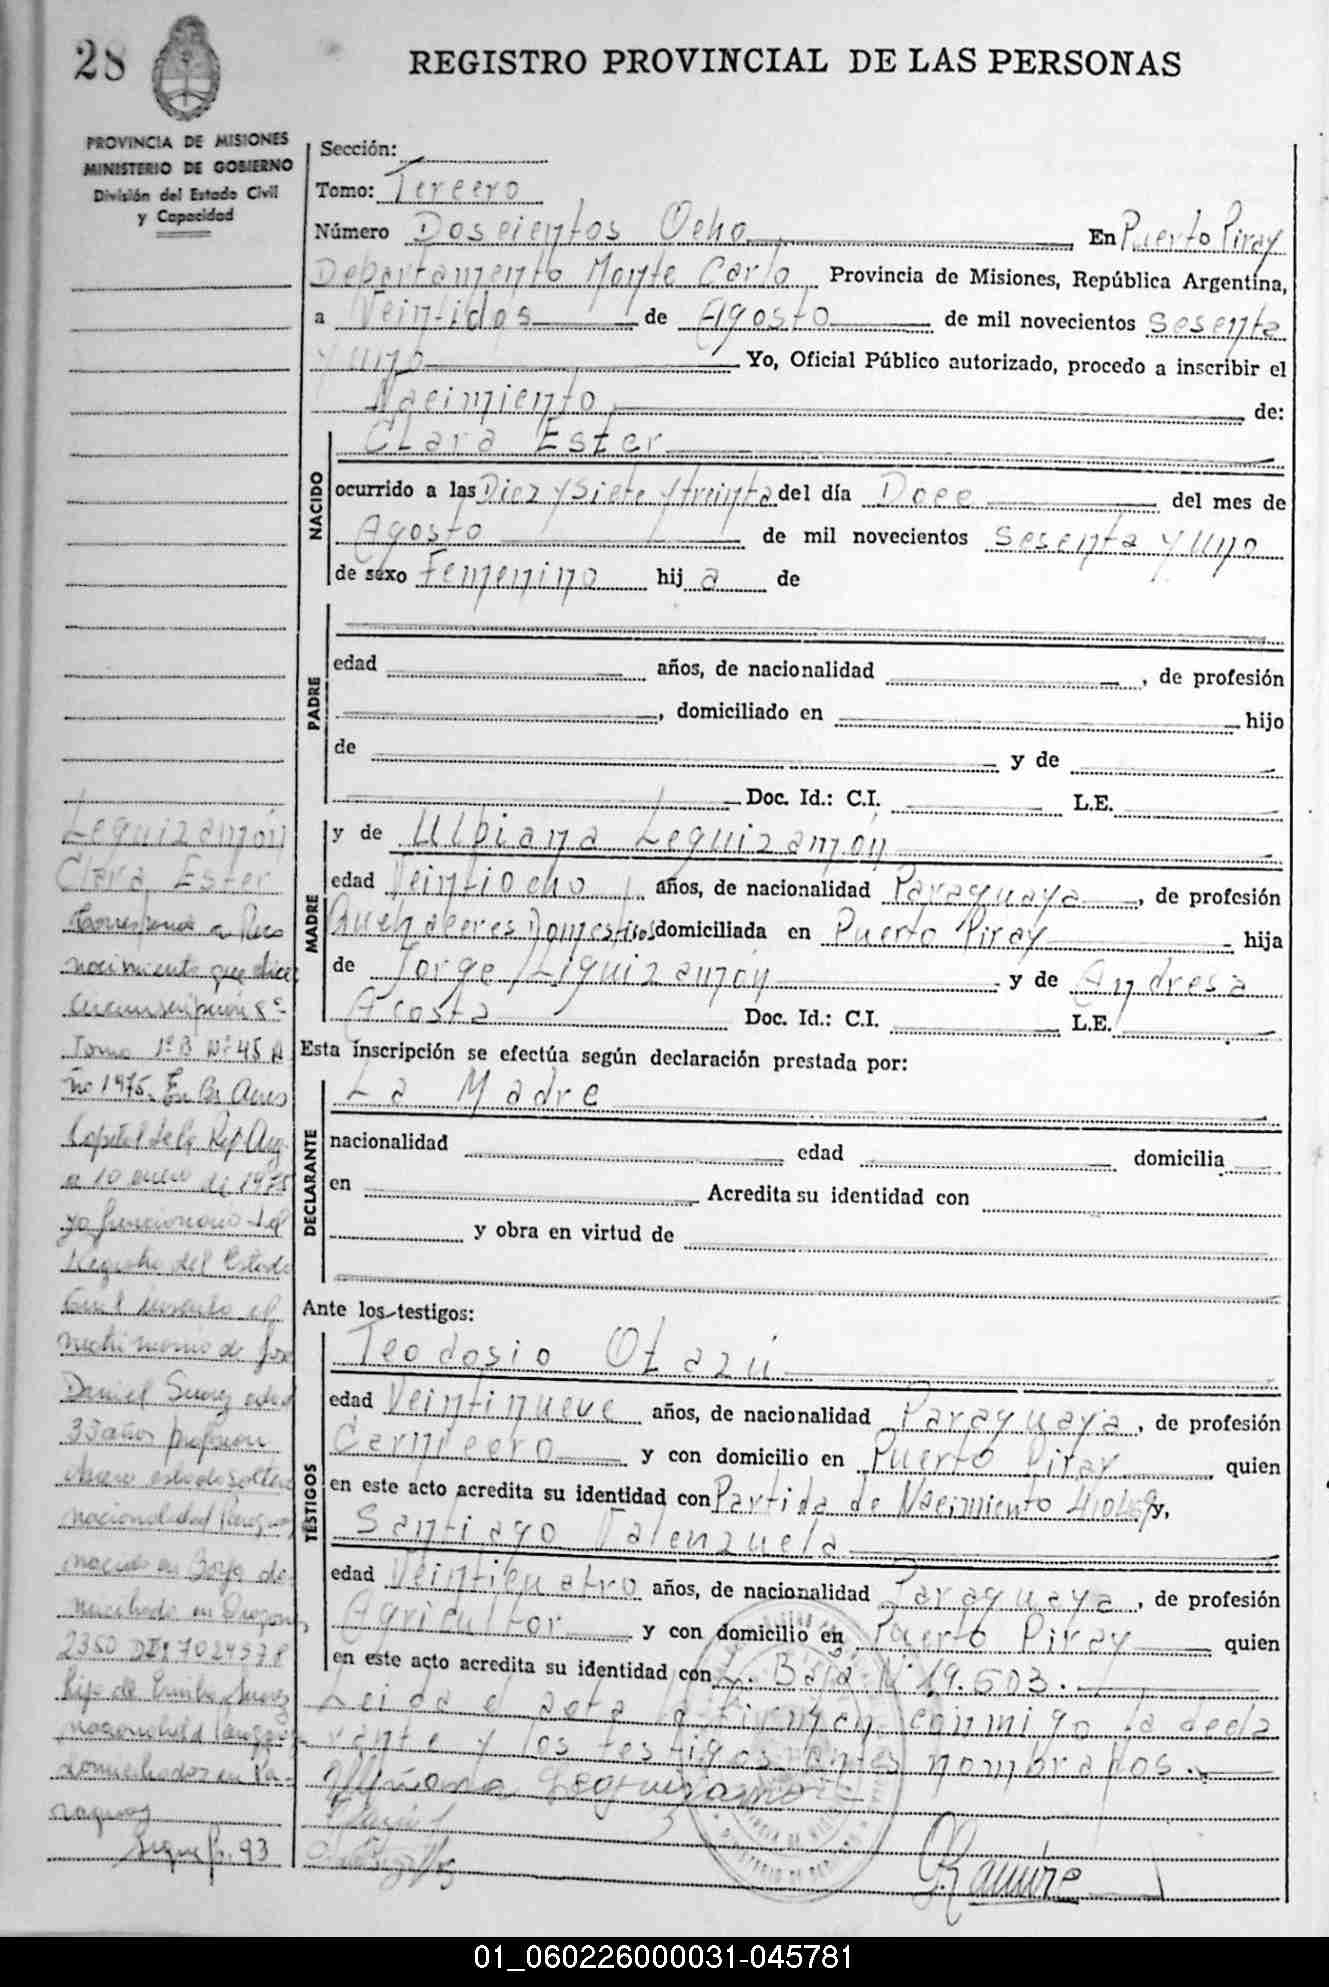 28
REGISTRO PROVINCIAL DE LAS PERSONAS
PROVINCIA DE MISIONES
MINISTERIO DE GOBIERNO
División del Estado Civil
y Capacidad
Sección:
Tomo: Tercero
Número Doscientos Ocho En Puerto Piray
Departamento Monte Carlo Provincia de Misiones, República Argentina,
a Veintidos de Agosto de mil novecientos Sesenta
y uno Yo, Oficial Público autorizado, procedo a inscribir el
Nacimiento de:
NACIDO
Clara Ester
ocurrido a las Diez y Siete y treinta del día Doce del mes de
Agosto de mil novecientos Sesenta y uno
de sexo Femenino hij a de
PADRE
edad años, de nacionalidad , de profesión
, domiciliado en hijo
de y de
Doc. Id.: C.I. L.E.
MADRE
y de Ulpiana Leguizamón
edad Veintiocho años, de nacionalidad Paraguaya, de profesión
Quehaceres Domesticos domiciliada en Puerto Piray hija
de Jorge Liguizamón y de Andresa
Acosta Doc. Id.: C.I. L.E.
Esta inscripción se efectúa según declaración prestada por:
DECLARANTE
La Madre
nacionalidad edad domicilia
en Acredita su identidad con
y obra en virtud de
Ante los testigos:
TESTIGOS
Teodosio Otazú
edad Veintinueve años, de nacionalidad Paraguaya, de profesión
Carnicero y con domicilio en Puerto Piray quien
en este acto acredita su identidad con Partida de Nacimiento y,
Santiago Valenzuela
edad Veinticuatro años, de nacionalidad Paraguaya, de profesión
Agricultor y con domicilio en Puerto Piray quien
en este acto acredita su identidad con C. Baja Nº 19.603.
Leida el acta la firman conmigo la decla
rante y los testigos antes nombrados.
Leguizamon
Ramírez
Leguizamón
Clara Ester
Corresponde a Reco
nocimiento que dice
circunscripción 8º
Tomo 1º B Nº 45 A
ño 1975. En Bs Aires
Capital de la Rep Arg.
a 10 enero de 1975
yo funcionario del
Registro del Estado
Civil inscribo el
de José
Daniel Suarez edad
33 años profesion
obrero estado soltero
nacionalidad Paraguay
nacido en Borja do
miciliado en
2350 DI
hijo de Emilio Suarez
nacionalidad Paraguay
domiciliados en Pa-
raguay
sigue fs. 93
01_060226000031-045781